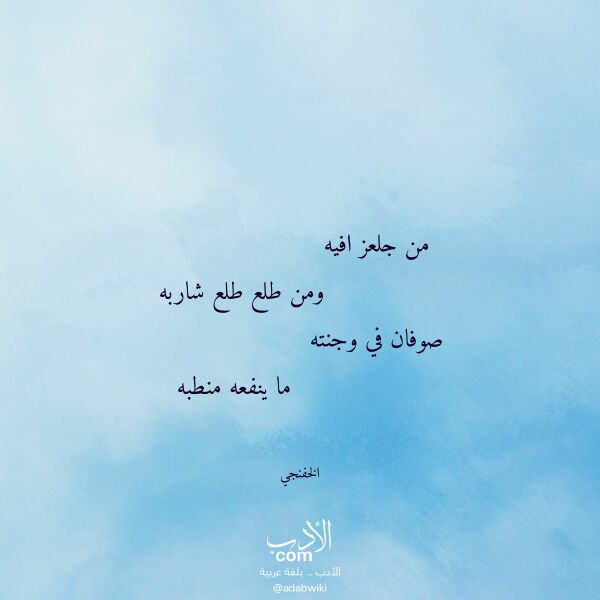 من جلعز افيه
ومن طلع طلع شاربه
صوفان في وجنته
ما ينفعه منطبه
الخفنجي
الأدب
com
الأدب .. بلغة عربية
@adabwiki